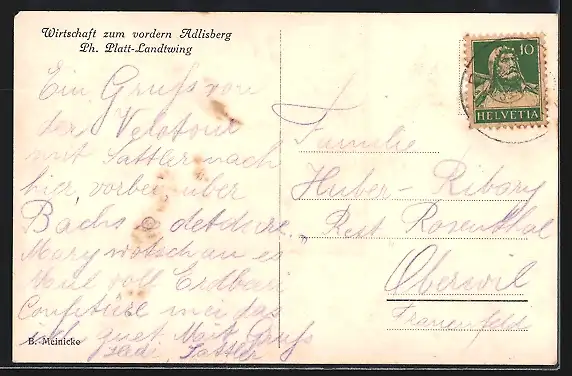 Wirtschaft zum vordern Adlisberg
Ph. Platt-Landtwing
10
HELVETIA
Ein Gruss von
der Velotour
mit Sattler nach
hier, vorbei über
Bachs
Mary
voll Erdbeer
Confitüre das
guet Mit Gruss
Sattler
Familie
Huber-Ribary
Rest. Rosenthal
Oberwil
Frauenfeld
B. Meinicke